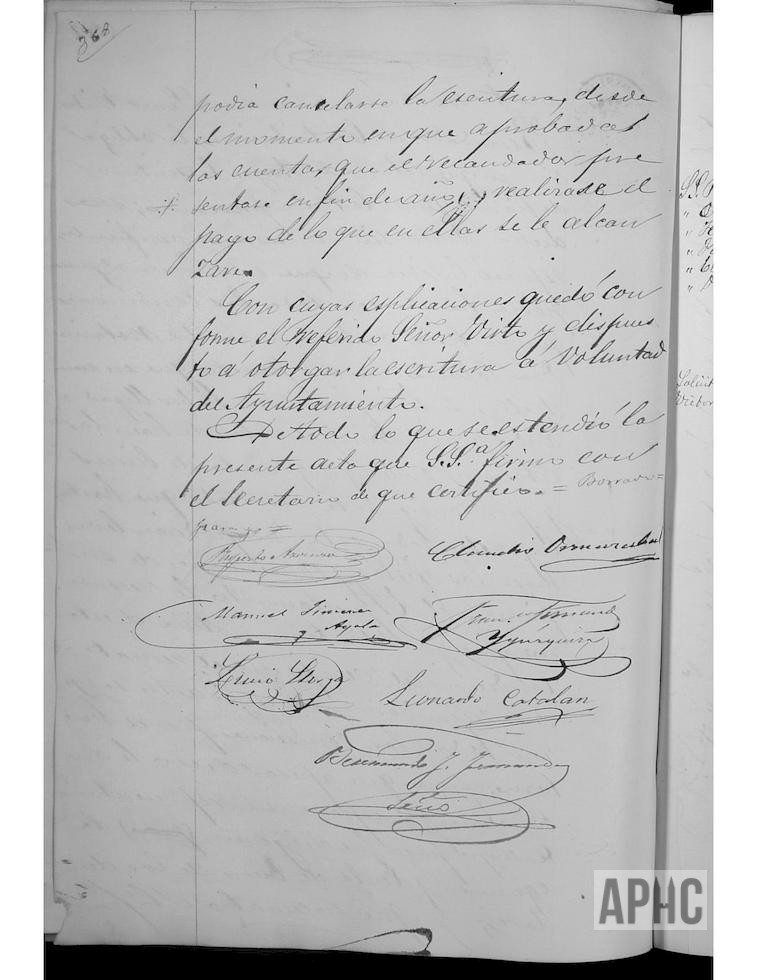 368
podia cancelarse la escritura, desde
el momento en que aprobadas
las cuentas que el recaudador pre
sentase en fin de año, realizase el
pago de lo que en ellas se le alcan
zare.
Con cuyas esplicaciones quedó con
forme el referido Señor Virto y dispues
to á otorgar la escritura á voluntad
del Ayuntamiento.
De todo lo que se estendió la
presente acta que S.S.ª firmó con
el Secretario de que certifico. = Borrado =
Ruperto
Claudio
Manuel Jimenez
Ayala
Fran.co
Leonardo Catalan
J. Fernandez
Srio
S.S.
Solicit
APHC